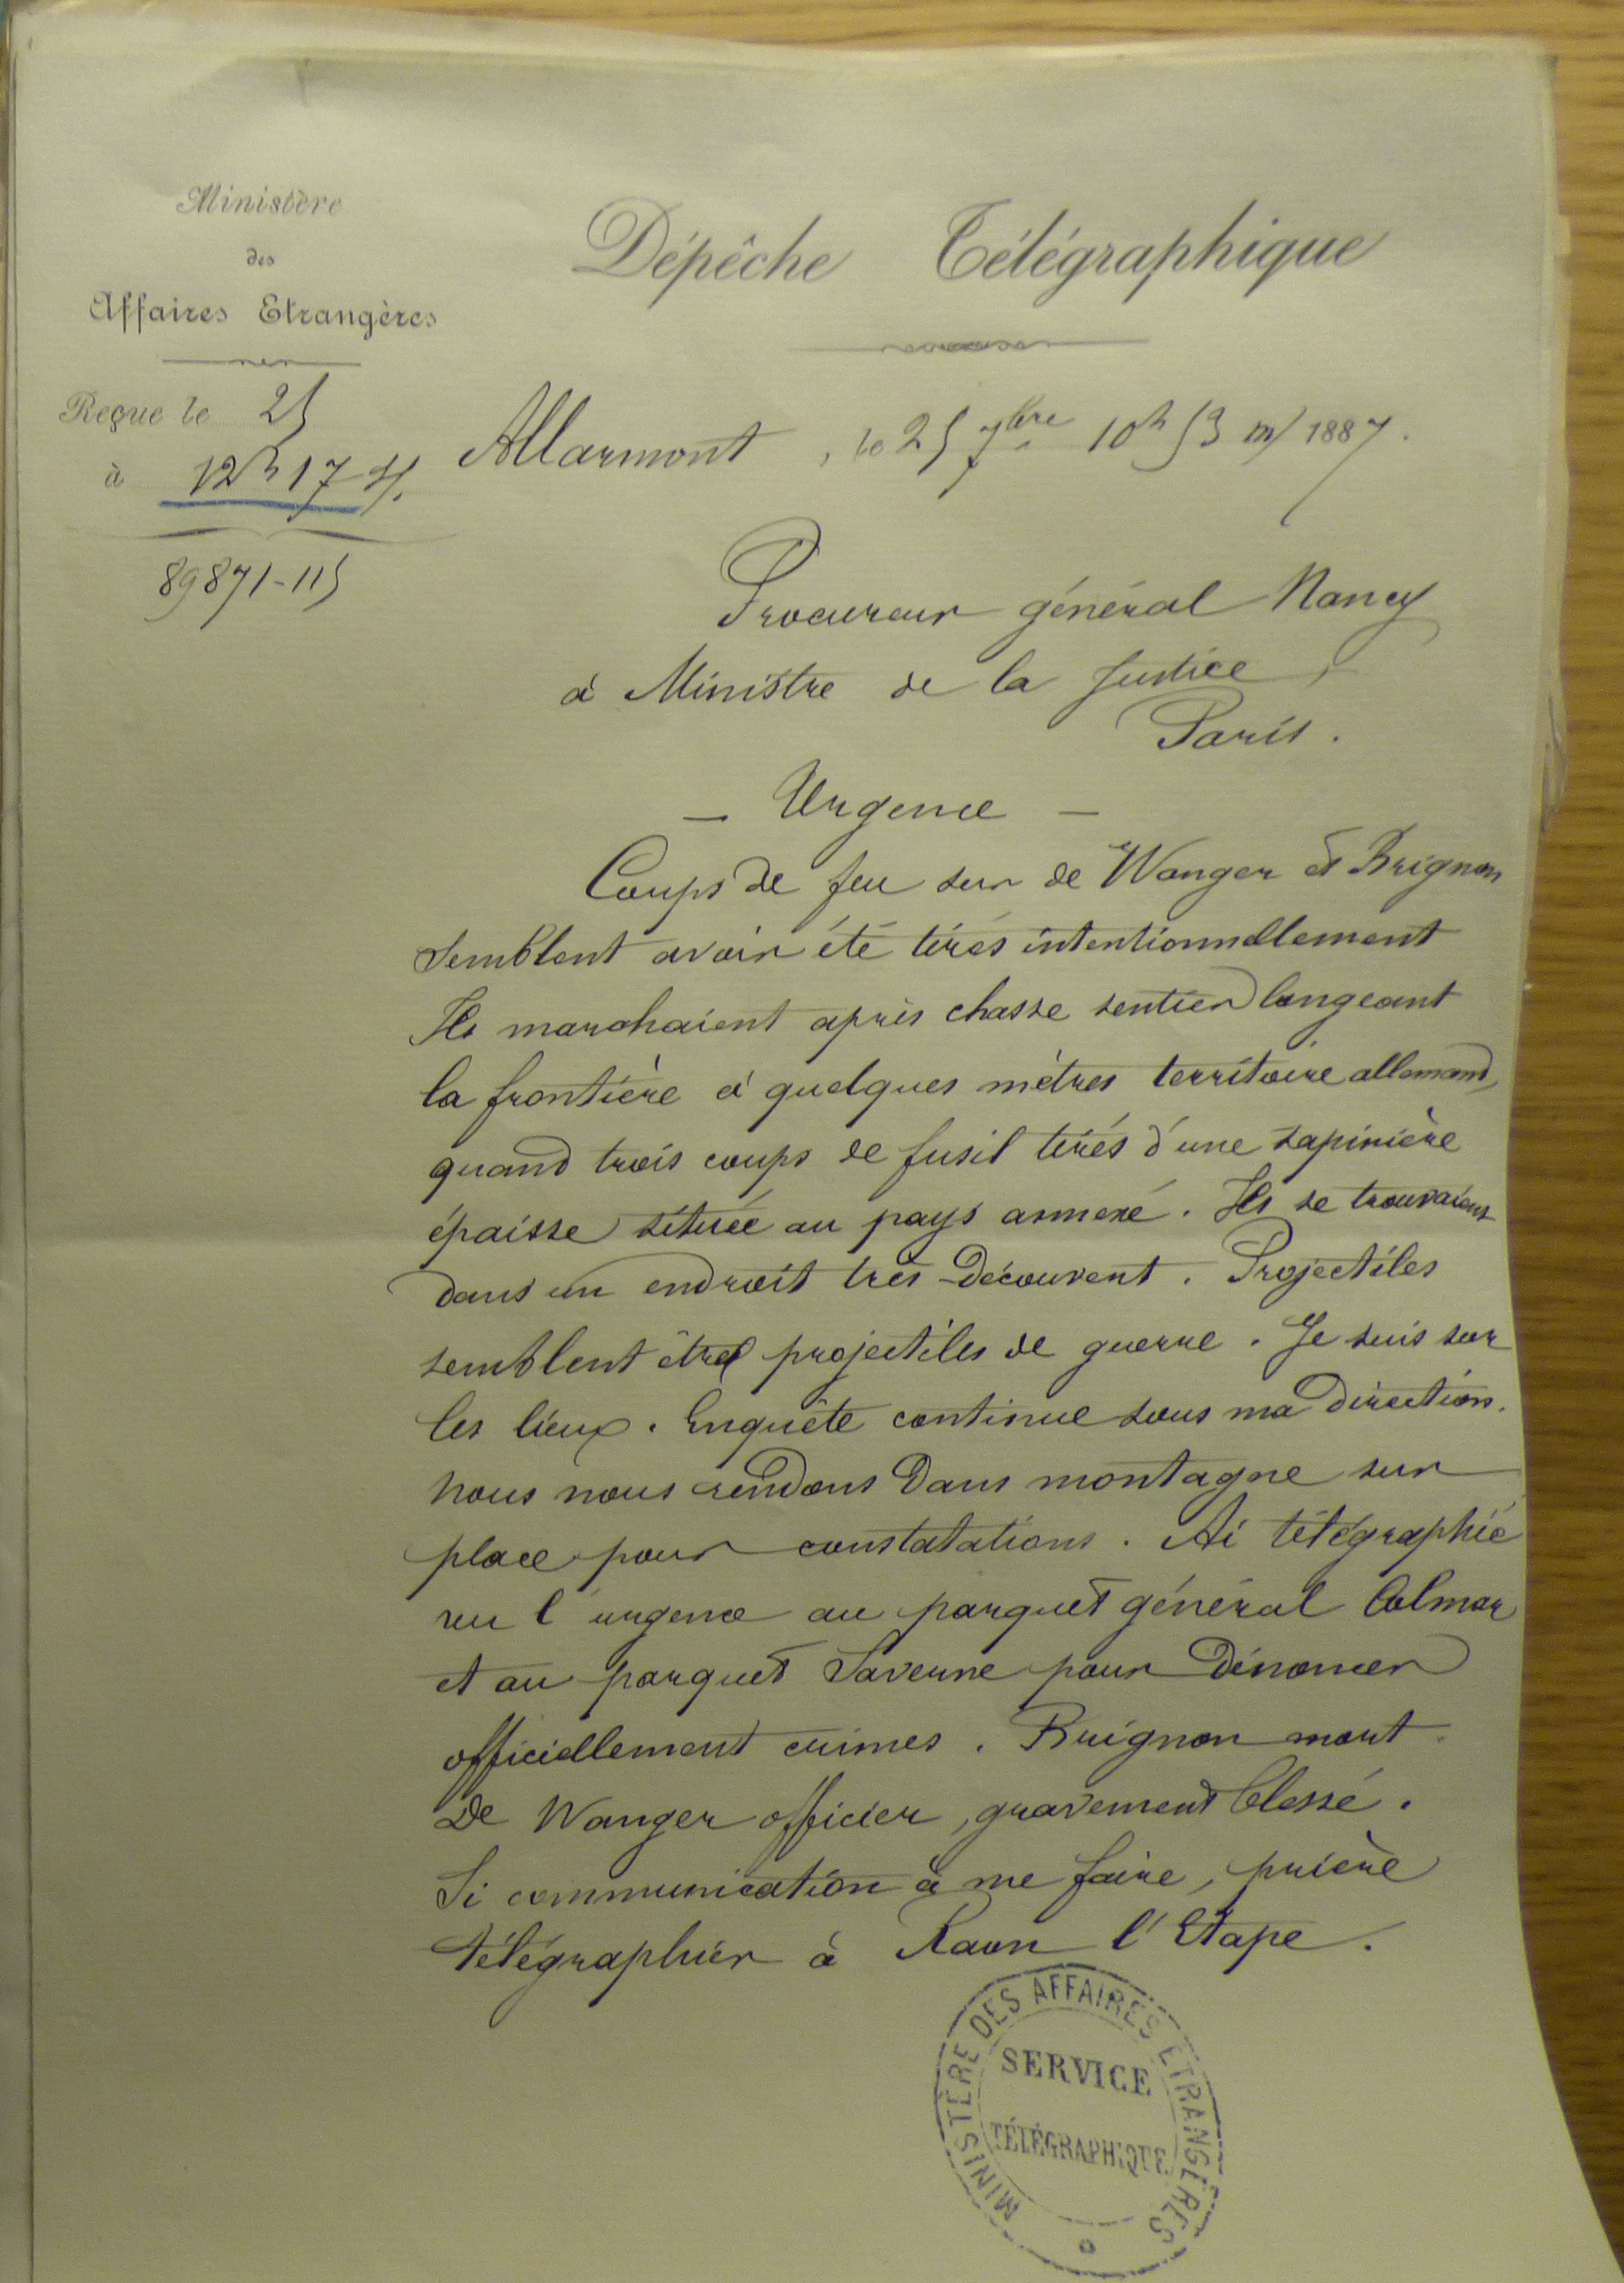 Ministère
des
Affaires Etrangères
Reçue le 25
à 12h 17 s/.
89871-115
Dépêche Télégraphique
Allarmont, le 25 7bre 10h 53 m/ 1887.
Procureur général Nancy
à Ministre de la Justice,
Paris.
— Urgence —
Coups de feu sur de Wanger et Brignon
semblent avoir été tirés intentionnellement
Ils marchaient après chasse sentier longeant
la frontière à quelques mètres territoire allemand,
quand trois coups de fusil tirés d'une sapinière
épaisse située au pays annexé. Ils se trouvaient
dans un endroit très découvert. Projectiles
semblent être projectiles de guerre. Je suis sur
les lieux. Enquête continue sous ma direction.
Nous nous rendons dans montagne sur
place pour constatations. Ai télégraphié
vu l'urgence au parquet général Colmar
et au parquet Saverne pour dénoncer
officiellement crimes. Brignon mort.
De Wanger officier, gravement blessé.
Si communication à me faire, prière
télégraphier à Raon l'Etape.
MINISTÈRE DES AFFAIRES ETRANGÈRES
SERVICE
TÉLÉGRAPHIQUE